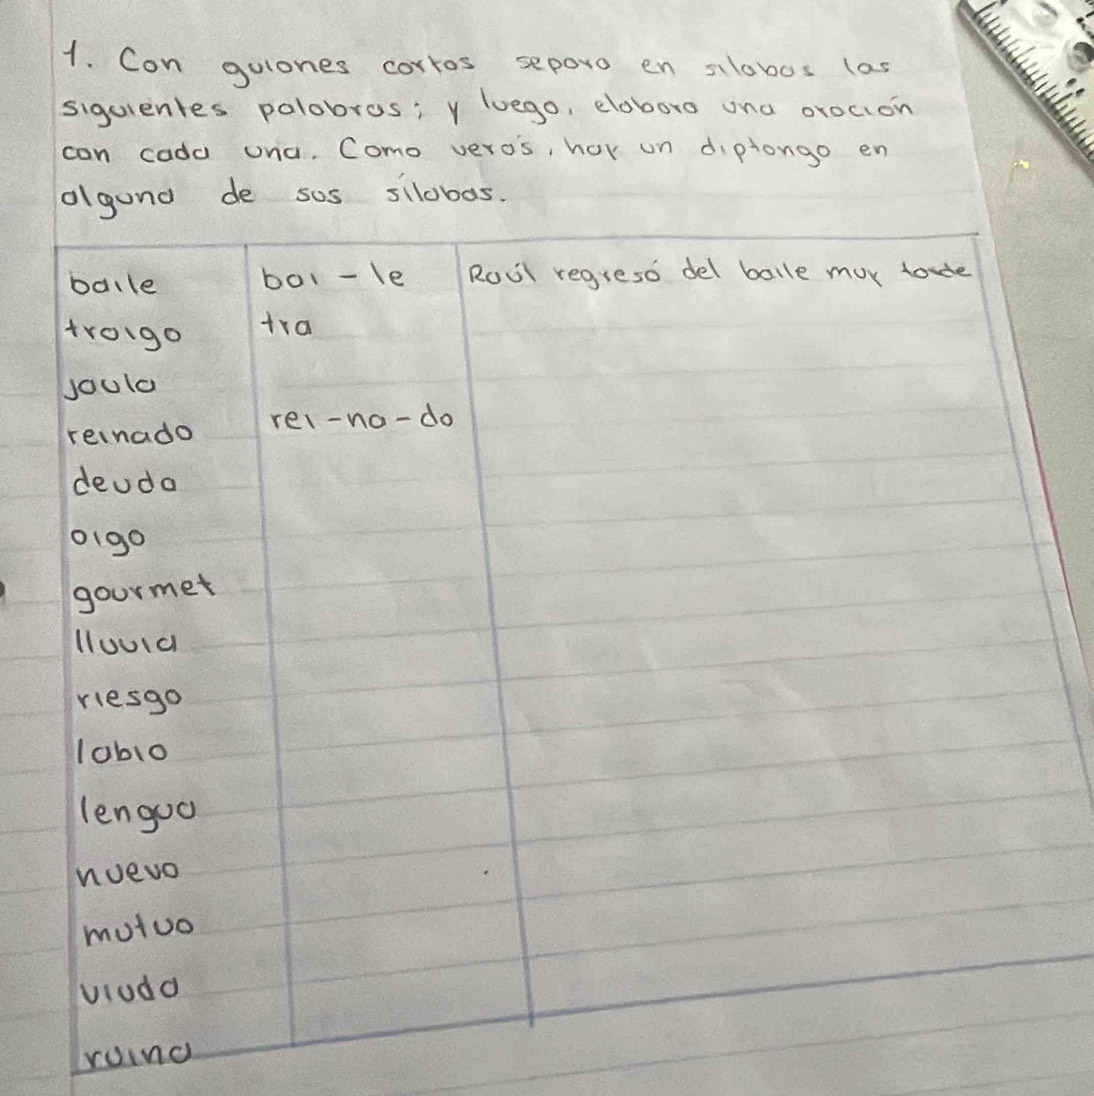 1. Con guiones cortos separa en silabas las
siguientes palabras; y luego, elabora una oración
con cada una. Como verás, hay un diptongo en
alguna de sus sílabas.
baile bai-le Raúl regresó del baile muy tarde
traigo tra
jaula
reinado rei-na-do
deuda
oigo
gourmet
lluvia
riesgo
labio
lengua
nuevo
mutuo
viuda
ruina